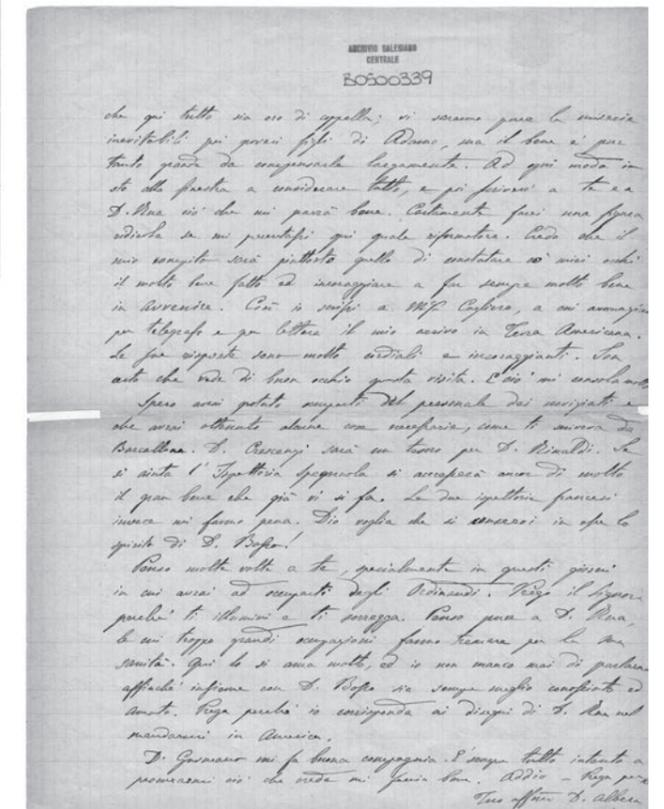 ARCHIVIO SALESIANO
CENTRALE
B0500339
che qui tutto sia oro di coppella; vi saranno pure le miserie
inevitabili pei poveri figli di Adamo, ma il bene è pur
tanto grande da compensarle largamente. Ad ogni modo io
sto alla finestra a considerare tutto, e poi scriverò a te e a
D. Rua ciò che mi parrà bene. Certamente farei una figura
ridicola se mi presentassi qui quale riformatore. Credo che il
mio compito sarà piuttosto quello di constatare co' miei occhi
il molto bene fatto ed incoraggiare a far sempre molto bene
in avvenire. Così io scrissi a Mgr Cagliero, a cui annunziai
per telegrafo e per lettera il mio arrivo in Terra Americana.
Le sue risposte sono molto cordiali e incoraggianti. Son
certo che vede di buon occhio questa visita. E ciò mi consola molto
Spero avrai potuto occuparti del personale dei noviziati e
che avrai ottenuto alcune cose necessarie, come ti scriveva da
Barcellona. D. Crescenzi sarà un tesoro per D. Rinaldi. Se
si aiuta l'Ispettoria spagnuola si accrescerà ancor di molto
il gran bene che già vi si fa. Le due ispettorie francesi
invece mi fanno pena. Dio voglia che si conservi in esse lo
spirito di D. Bosco!
Penso molte volte a te, specialmente in questi giorni
in cui avrai ad occuparti degli Ordinandi. Prego il Signore
perchè ti illumini e ti sorregga. Penso pure a D. Rua,
le cui troppo grandi occupazioni fanno tremare per la sua
sanità. Qui lo si ama molto, ed io non manco mai di parlarne
affinchè insieme con D. Bosco sia sempre meglio conosciuto ed
amato. Prega perchè io corrisponda ai disegni di D. Rua nel
mandarmi in America.
D. Gusmano mi fa buona compagnia. È sempre tutto intento a
procurarmi ciò che crede mi faccia bene. Addio - Prega per
Tuo affmo D. Albera